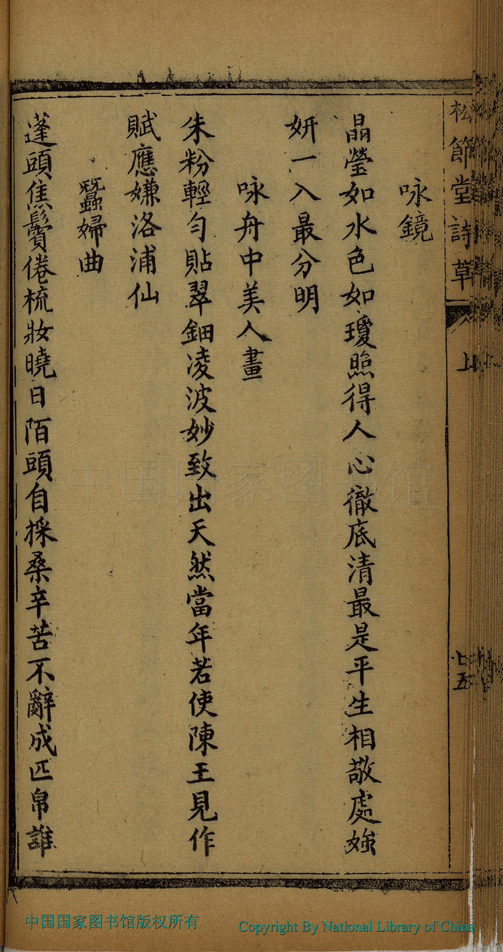 松節堂詩草
上
七五
咏鏡
晶瑩如水色如瓊照得人心徹底清最是平生相敬處媸
妍一入最分明
咏舟中美人畫
朱粉輕勻貼翠鈿凌波妙致出天然當年若使陳王見作
賦應嫌洛浦仙
蠶婦曲
蓬頭焦鬢倦梳妝曉日陌頭自採桑辛苦不辭成匹帛誰
中国国家图书馆
中国国家图书馆版权所有
Copyright By National Library of China